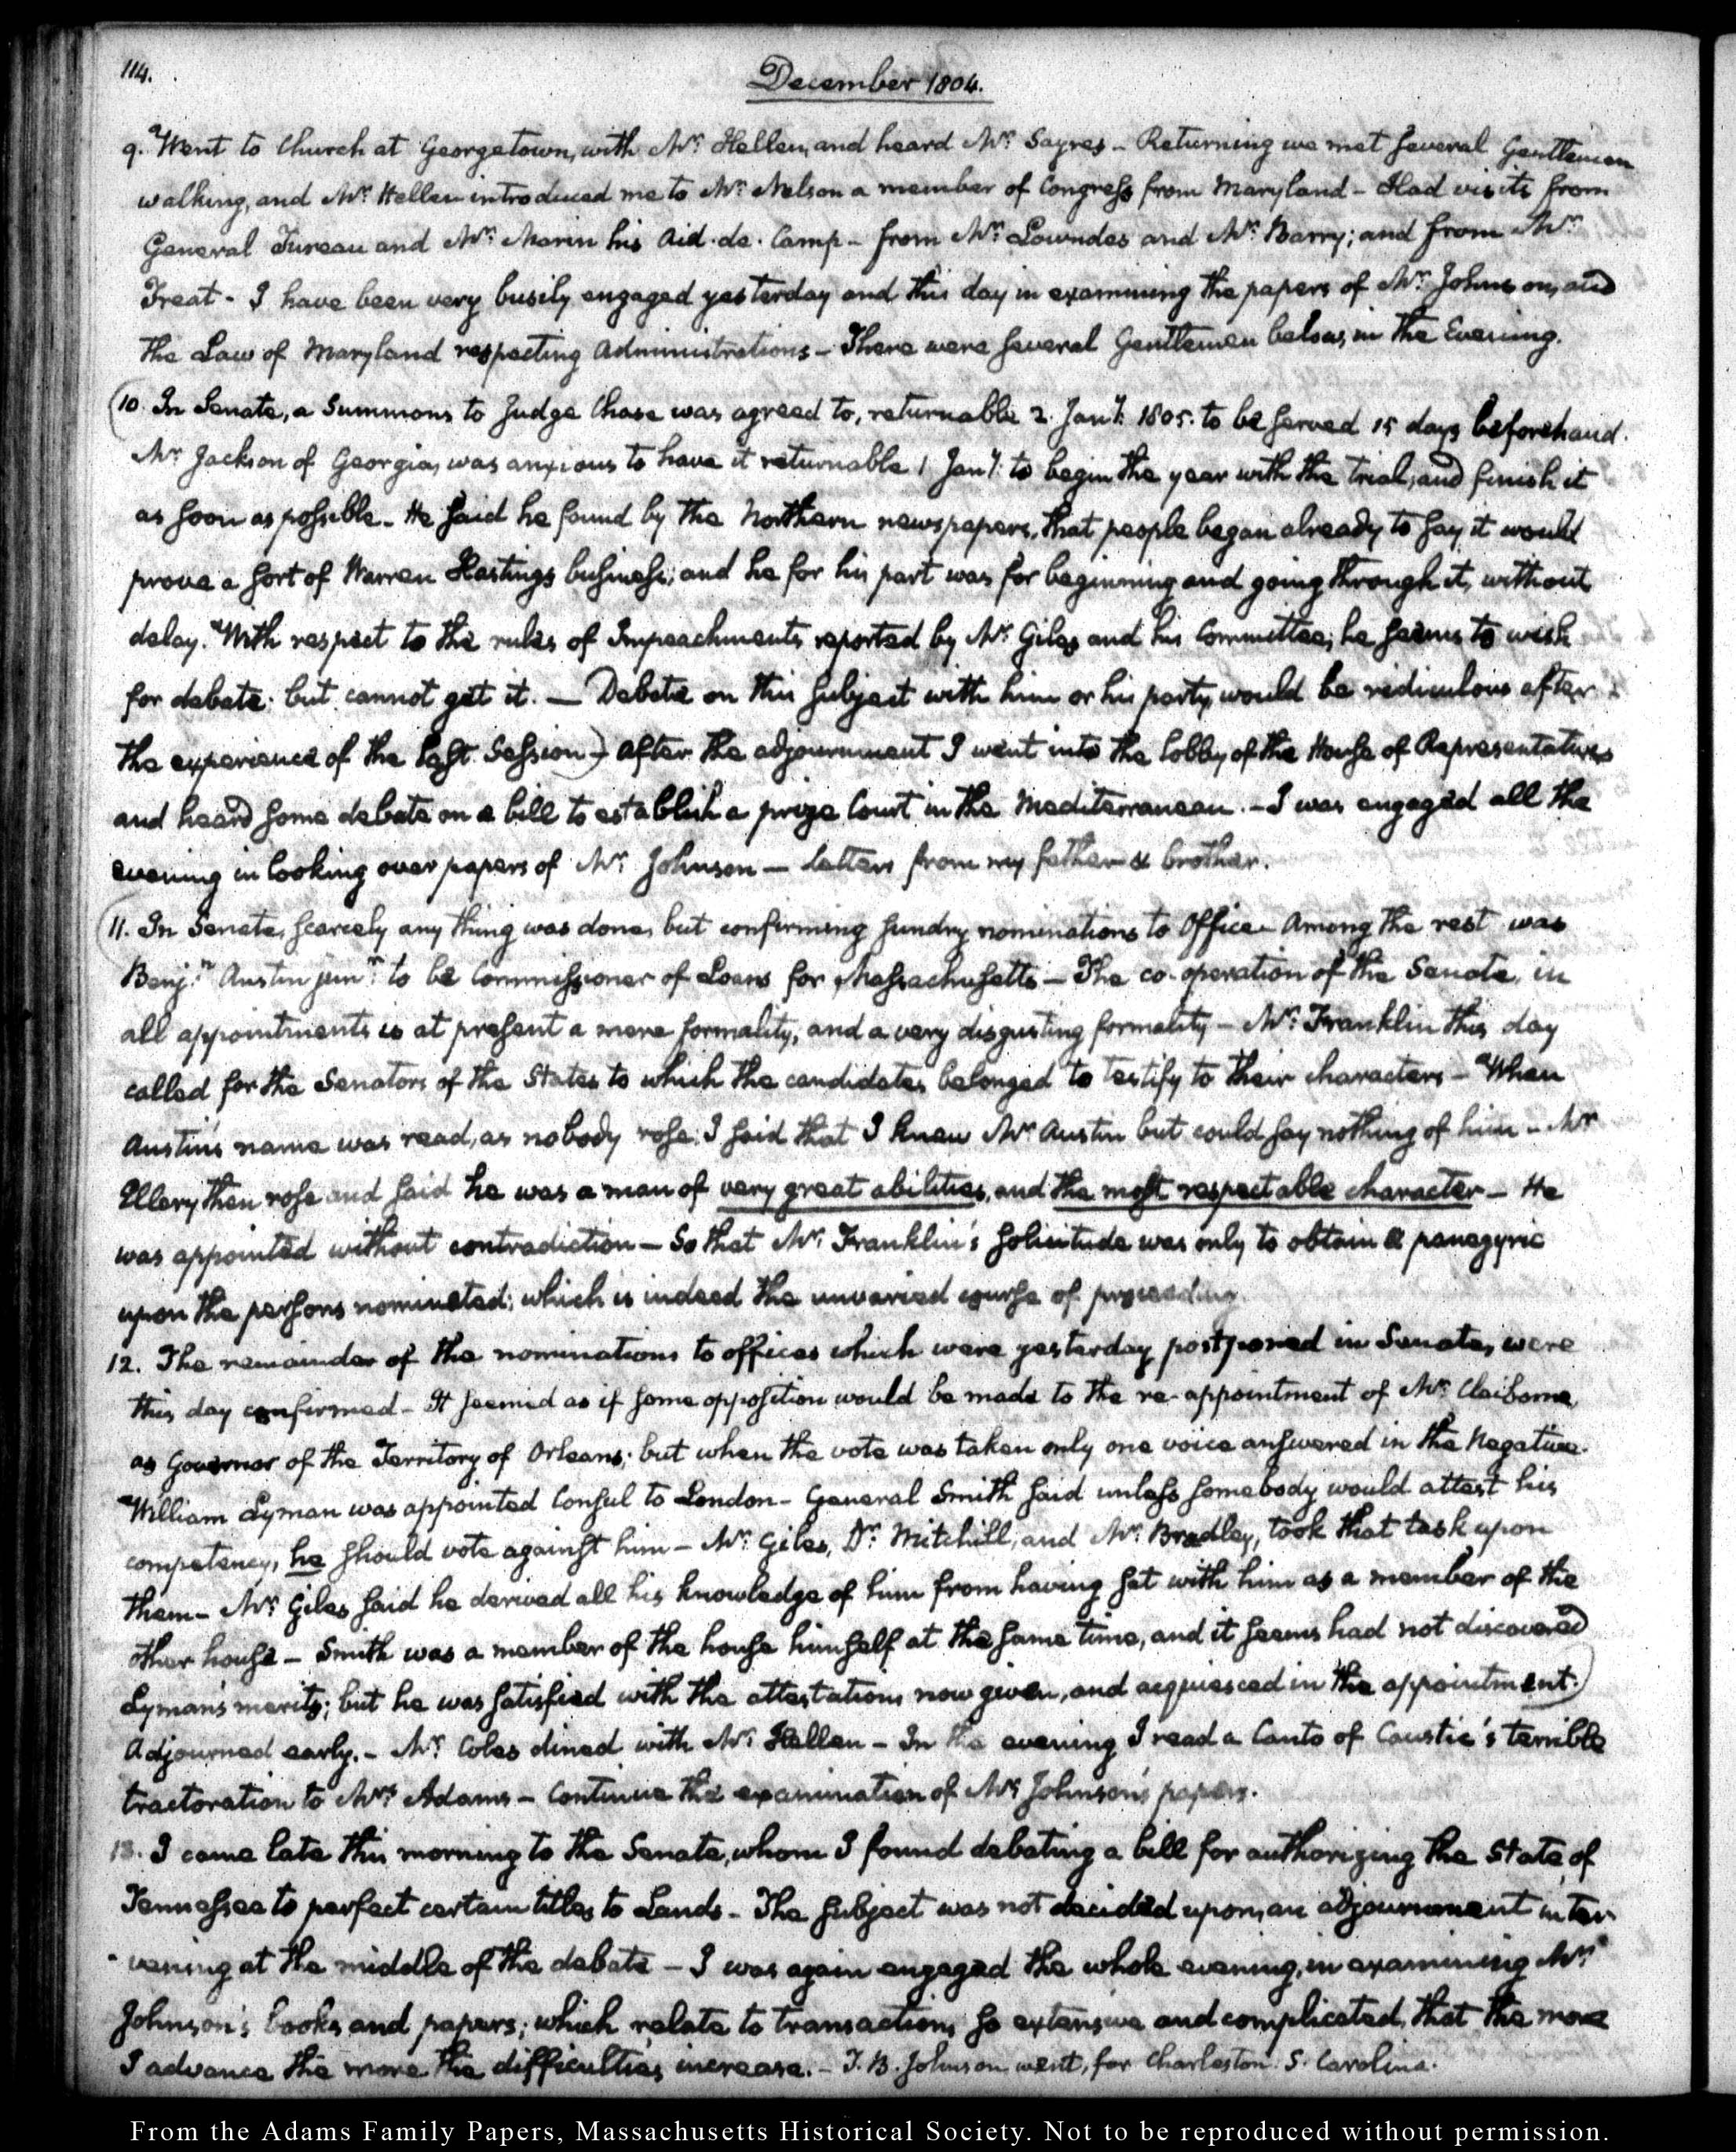 114.
December 1804.
9. Went to Church at Georgetown, with Mr: Hellen, and heard Mr: Sayres – Returning we met several Gentlemen
walking, and Mr: Hellen introduced me to Mr: Nelson a member of Congress from Maryland – Had visits from
General Tureau and Mr: Marin his Aid-de-Camp – from Mr: Lowndes and Mr: Barry; and from Mr:
Treat – I have been very busily engaged yesterday and this day in examining the papers of Mr: Johnson, and
the Law of Maryland respecting Administrations – There were several Gentlemen below, in the Evening.
10. In Senate, a Summons to Judge Chase was agreed to, returnable 2. Jany: 1805. to be served 15 days beforehand.
Mr: Jackson of Georgia, was anxious to have it returnable 1 Jany: to begin the year with the trial, and finish it
as soon as possible – He said he found by the Northern newspapers, that people began already to say it would
prove a sort of Warren Hastings business; and he for his part was for beginning and going through it, without
delay. With respect to the rules of Impeachments reported by Mr: Giles and his Committee, he seems to wish
for debate; but cannot get it. — Debate on this subject with him or his party, would be ridiculous after
the experience of the last Session) – After the adjournment I went into the lobby of the House of Representatives
and heard some debate on a bill to establish a prize Court in the Mediterranean. – I was engaged all the
evening in looking over papers of Mr: Johnson — Letters from my father & brother.
11. In Senate, scarcely any thing was done, but confirming sundry nominations to Office – Among the rest was
Benj:n Austin junr: to be Commissioner of Loans for Massachusetts — The co-operation of the Senate, in
all appointments is at present a mere formality, and a very disgusting formality – Mr: Franklin this day
called for the Senators of the States to which the candidates belonged to testify to their characters – When
Austin's name was read, as nobody rose, I said that I knew Mr: Austin but could say nothing of him – Mr
Ellery then rose and said he was a man of very great abilities, and the most respectable character – He
was appointed without contradiction — So that Mr: Franklin's solicitude was only to obtain a panegyric
upon the persons nominated; which is indeed the unvaried course of proceeding.
12. The remainder of the nominations to offices which were yesterday postponed in Senate, were
this day confirmed – It seemed as if some opposition would be made to the re-appointment of Mr: Claiborne,
as Governor of the Territory of Orleans; but when the vote was taken only one voice answered in the Negative.
William Lyman was appointed Consul to London – General Smith said unless somebody would attest his
competency, he should vote against him – Mr: Giles, Dr: Mitchill, and Mr: Bradley, took that task upon
them – Mr: Giles said he derived all his knowledge of him from having sat with him as a member of the
other house – Smith was a member of the house himself at the same time, and it seems had not discovered
Lyman's merits; but he was satisfied with the attestations now given, and acquiesced in the appointment.)
Adjourned early. – Mr: Coles dined with Mr: Hellen – In the evening I read a Canto of Caustic's terrible
tractoration to Mrs: Adams – Continue the examination of Mr: Johnson's papers.
13. I came late this morning to the Senate, whom I found debating a bill for authorizing the State of
Tennessee to perfect certain titles to Lands – The subject was not decided upon, an adjournment inter-
-vening at the middle of the debate – I was again engaged the whole evening, in examining Mr:
Johnson's books and papers; which relate to transactions so extensive and complicated, that the more
I advance the more the difficulties increase. – T. B. Johnson went, for Charleston. S. Carolina.
From the Adams Family Papers, Massachusetts Historical Society. Not to be reproduced without permission.